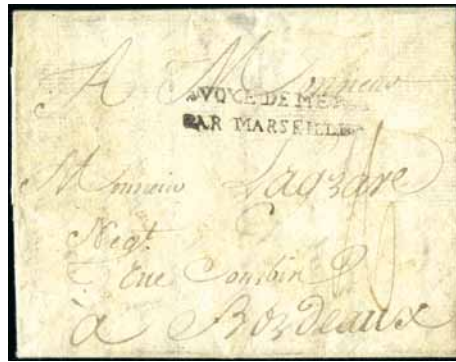 A Monsieur
VOYE DE MER
PAR MARSEILLE
Monsieur Lagzare
Negt.
Rue Bordeaux
à Bordeaux